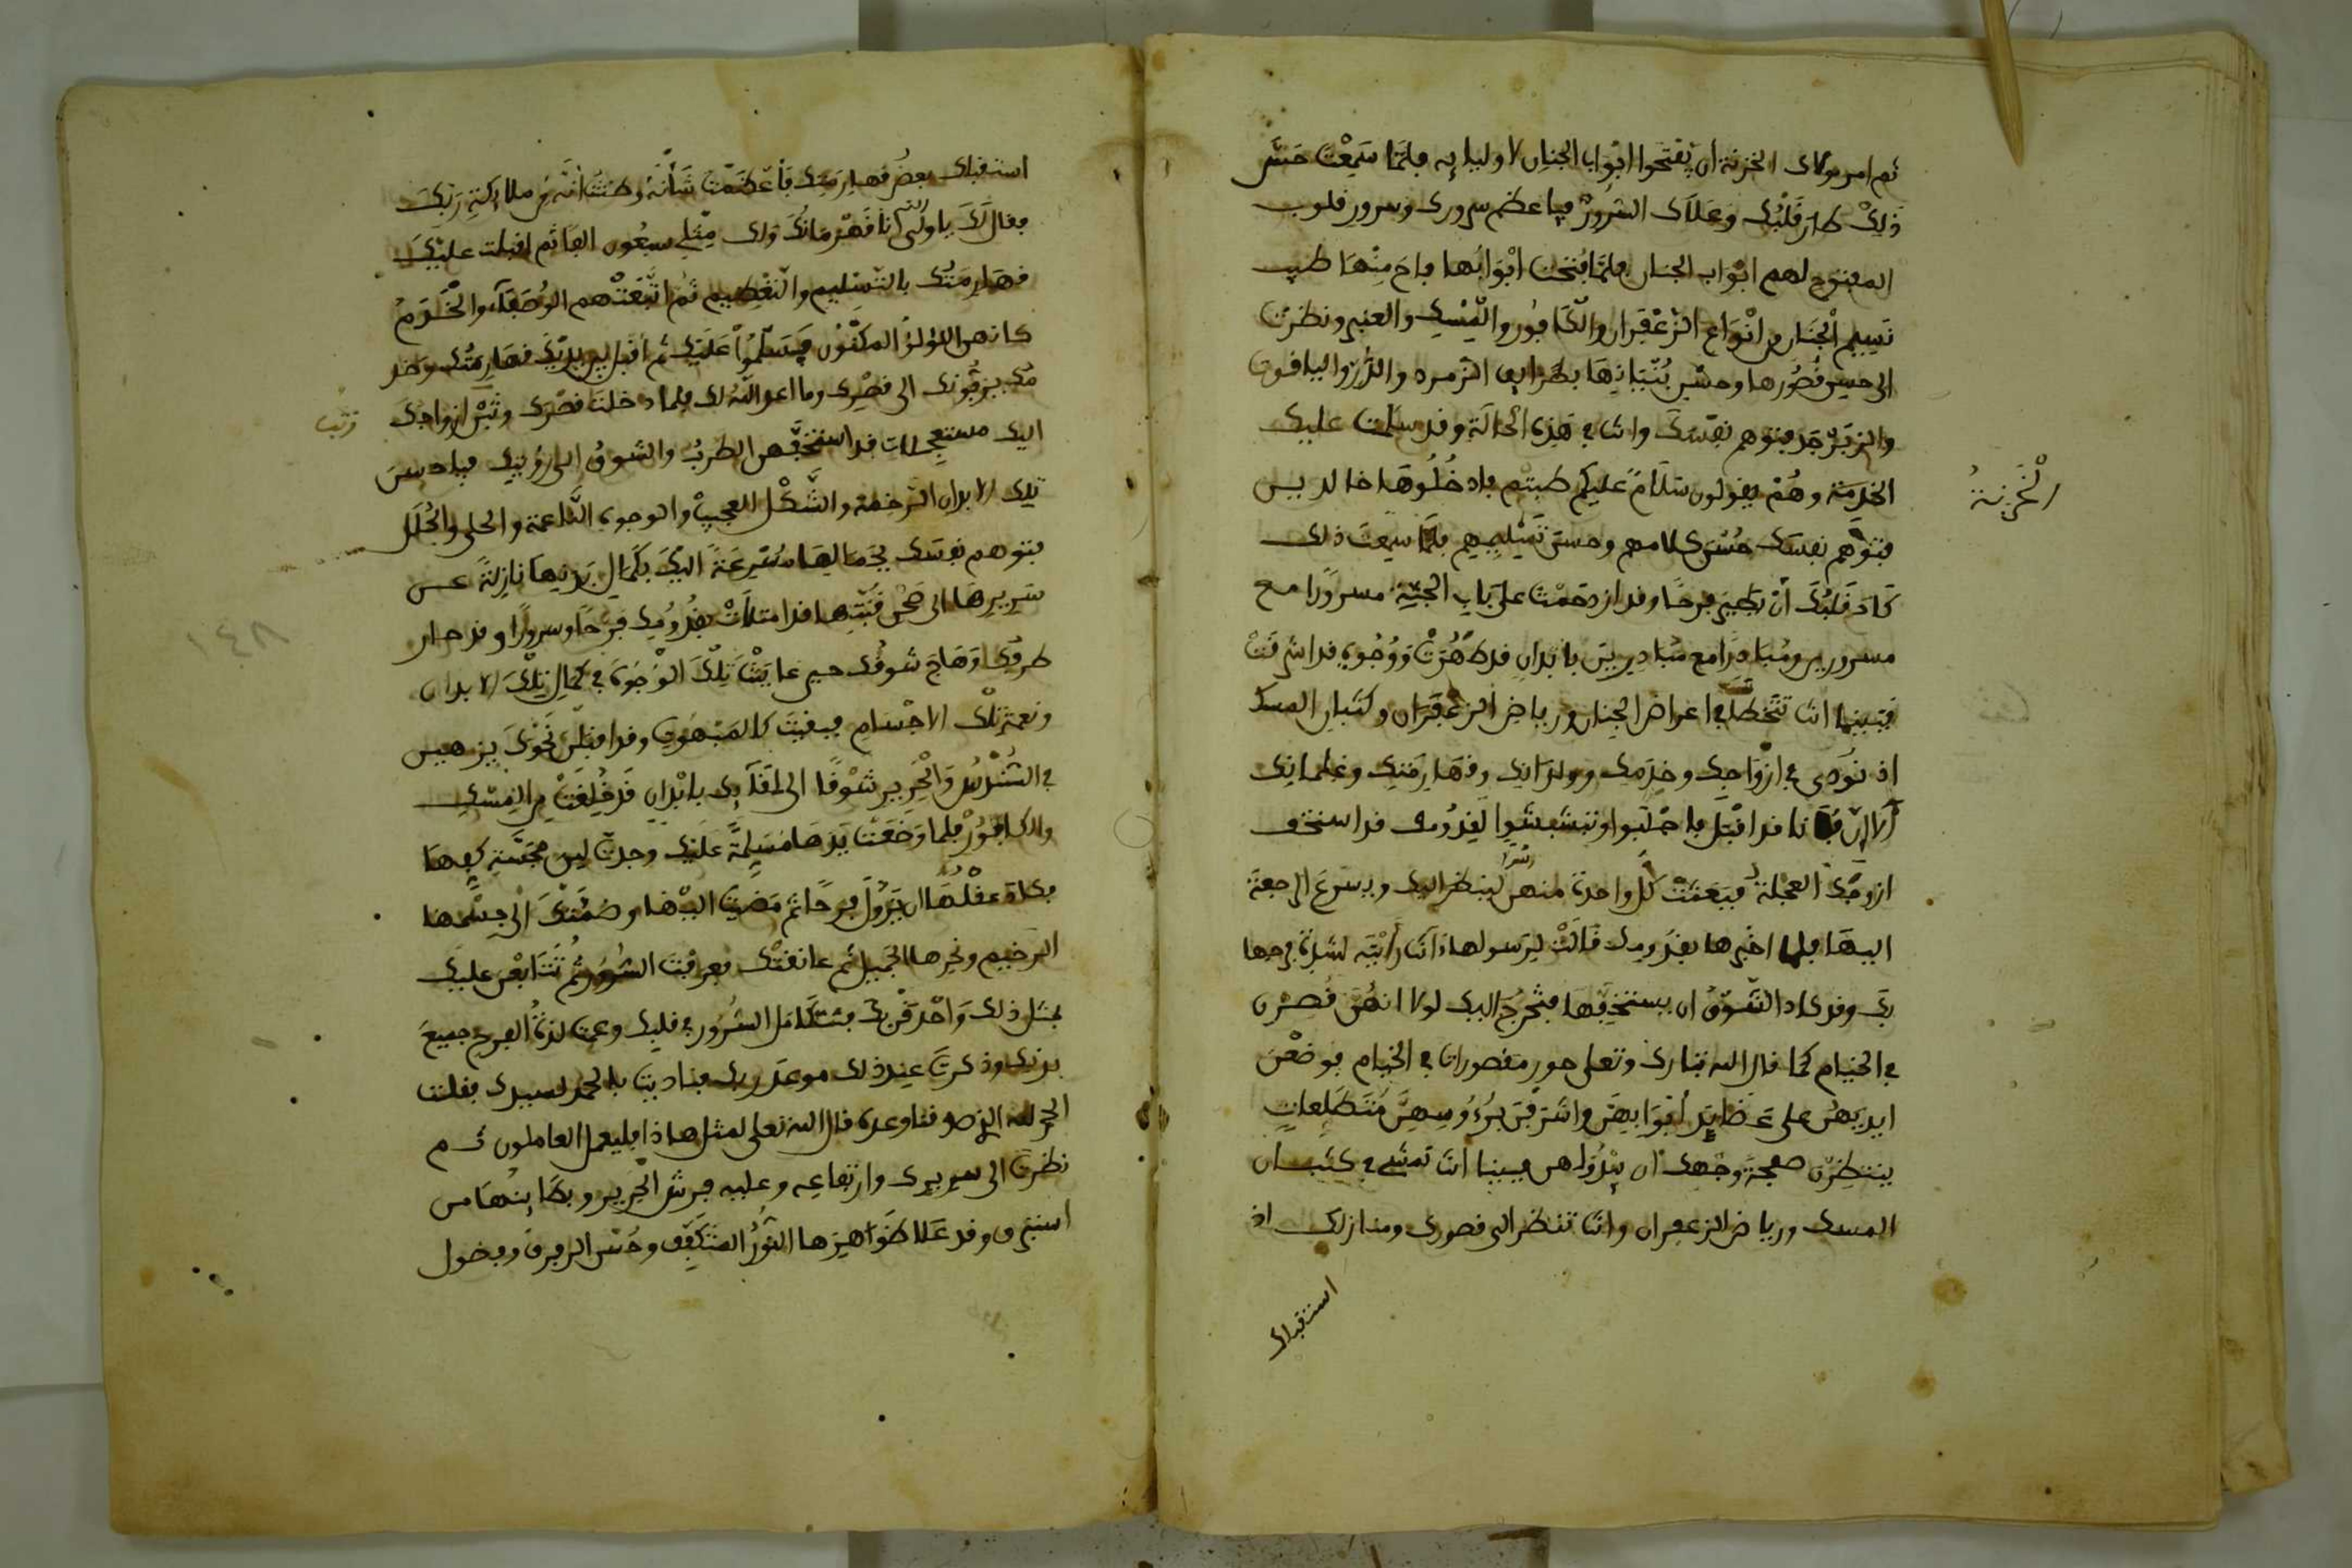 ثم امر مولاك الخزنة ان يفتحوا ابواب الجنان لاوليايه فلما سمعت حس
ذلك طار قلبك وعلاك السرور فيا عظم سرورك وسرور قلوب
المفتوح لهم ابواب الجنان فلما فتحت ابوابها فاح منها طيب
نسيم الجنان من انواع الزعفران والكافور والمسك والعنبر ونظرت
الى حسن قصورها وحسن بنيانها بطرايف الزمرد والدر والياقوت
والزبرجد فتوهم نفسك وانت في هذه الحالة وقد سلمت عليك
الخدمة وهم يقولون سلام عليكم طبتم فادخلوها خالدين
الخزنة
فتوهم نفسك حسن كلامهم وحسن تمثيلهم فلما سمعت ذلك
كاد قلبك ان يطير فرحا وقد ازدحمت على باب الجنة مسرورا مع
مسرورين ومبادرا مع مبادرين بابدان قد طهرت ووجوه قد اشرقت
فبينما انت تتخطى في اعراض الجنان ورياض الزعفران وكثبان المسك
اذ نودي في ازواجك وخدمك وولدانك وقهارمتك وغلمانك
الا ان فلانا قد اقبل فاجابوا وتبشبشوا لقدومك قد استخف
ازواجك العجلة فبعثت كل واحدة منهن لينظر اليك ويسرع الرجعة
اليها فلما اخبرها بقدومك قالت لرسولها اانت رايته لشدة فرحها
بك وقد كاد الشوق ان يستخفها فتخرج اليك لولا انهن قصرن
في الخيام كما قال الله تبارك وتعلى حور مقصورات في الخيام فوضعن
ايديهن على عضايد ابوابهن واشرفن برءوسهن متطلعات
ينتظرن صفحة وجهك ان يبدوا لهن فبينا انت تمشي في كثبان
المسك ورياض الزعفران وانت تنظر الى قصورك ومنازلك اذ
استقبلك
استقبلك بعض قهارمتك فاعظمت شانه وظننت انه من ملايكة ربك
فقال لك يا ولي الله انا قهرمانك ولك مثلي سبعون الفا ثم اقبلت عليك
قهارمتك بالتسليم والتعظيم ثم اتبعتهم الوصفاء والخدم
كانهن اللولؤ المكنون فسلموا عليك ثم اقبل بين يديك قهارمتك وخد
مك يزفونك الى قصرك وما اعد الله لك فلما دخلت قصرك وثبن ازواجك
وثب
اليك مستعجلات قد استخفهن الطرب والشوق الى رؤيتك فيا حسن
تلك الابدان الرخمة والشكل العجيب والوجوه الناعمة والحلى والحلل
فتوهم نفسك بجمالها مسرعة اليك بكمال بدنها نازلة عن
سريرها الى صحن قبتها قد امتلات بقدومك فرحا وسرورا وقد حار
طرفك وهاج شوقك حين عاينت تلك الوجوه في كمال تلك الابدان
ونعمة تلك الاجسام فبقيت كالمبهوت وقد اقبلن نحوك يزهين
في السندس والحرير شوقا الى لقايك بابدان قد خلقت من المسك
والكافور فلما وضعت يدها مسلمة عليك وجدت لين مجسة كفها
فكاد عقلها ان يزول فرحا ثم مضيت اليها وضمتك الى جسمها
الرخيم ونحرها الجميل ثم عانقتك فعرفت السرور ثم تتابعن عليك
بمثل ذلك واحدقن بك فتكامل السرور في قلبك وعمت لذة الفرح جميع
بدنك وذكرت عند ذلك موعد ربك فناديت بالحمد لسيدك فقلت
الحمد لله الذي صدقنا وعده قال الله تعلى لمثل هاذا فليعمل العاملون ثم
نظرت الى سريرك وارتفاعه وعليه فرش الحرير وبطاينها من
استبرق وقد علا ظواهرها النور المتكثف وحسن الرفرف وفضول
١٤٨